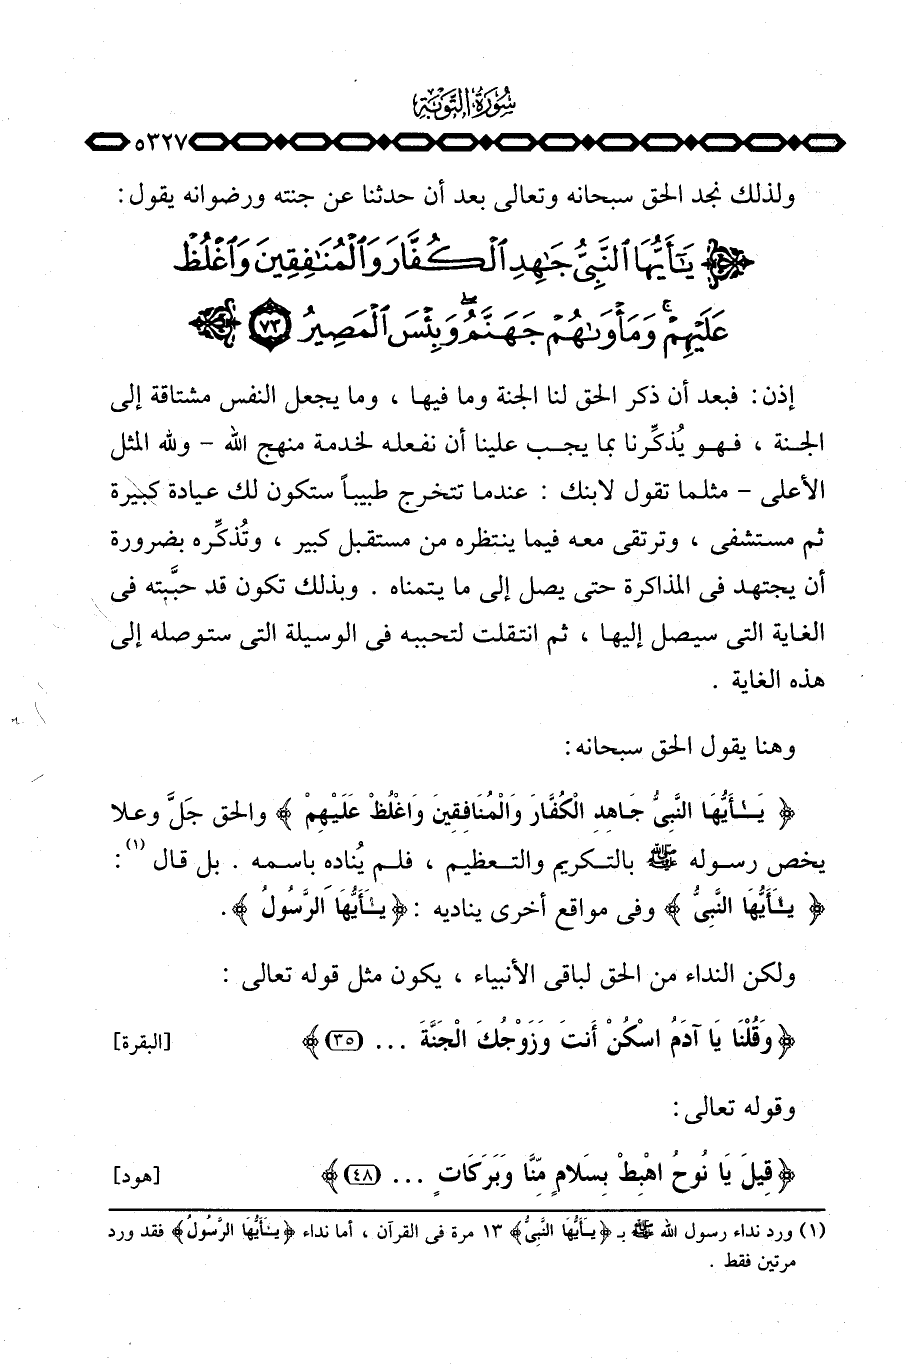 سُورَةُ التَّوْبَةِ
٥٣٢٧
ولذلك نجد الحق سبحانه وتعالى بعد أن حدثنا عن جنته ورضوانه يقول :
يَٰٓأَيُّهَا ٱلنَّبِىُّ جَٰهِدِ ٱلْكُفَّارَ وَٱلْمُنَٰفِقِينَ وَٱغْلُظْ
عَلَيْهِمْ ۚ وَمَأْوَىٰهُمْ جَهَنَّمُ ۖ وَبِئْسَ ٱلْمَصِيرُ ٧٣
إذن : فبعد أن ذكر الحق لنا الجنة وما فيها ، وما يجعل النفس مشتاقة إلى
الجنة ، فهو يُذكِّرنا بما يجب علينا أن نفعله لخدمة منهج الله - ولله المثل
الأعلى - مثلما تقول لابنك : عندما تتخرج طبيباً ستكون لك عيادة كبيرة
ثم مستشفى ، وترتقى معه فيما ينتظره من مستقبل كبير ، وتُذكِّره بضرورة
أن يجتهد فى المذاكرة حتى يصل إلى ما يتمناه . وبذلك تكون قد حبَّبته فى
الغاية التى سيصل إليها ، ثم انتقلت لتحببه فى الوسيلة التى ستوصله إلى
هذه الغاية .
وهنا يقول الحق سبحانه :
﴿ يَٰأَيُّهَا النَّبِىُّ جَاهِدِ الْكُفَّارَ وَالْمُنَافِقِينَ وَاغْلُظْ عَلَيْهِمْ ﴾ والحق جَلَّ وعلا
يخص رسوله ﷺ بالتكريم والتعظيم ، فلم يُناده باسمه . بل قال (١) :
﴿ يَٰأَيُّهَا النَّبِىُّ ﴾ وفى مواقع أخرى يناديه : ﴿ يَٰأَيُّهَا الرَّسُولُ ﴾ .
ولكن النداء من الحق لباقى الأنبياء ، يكون مثل قوله تعالى :
﴿ وَقُلْنَا يَا آدَمُ اسْكُنْ أَنتَ وَزَوْجُكَ الْجَنَّةَ ... (٣٥) ﴾ [البقرة]
وقوله تعالى :
﴿ قِيلَ يَا نُوحُ اهْبِطْ بِسَلَامٍ مِّنَّا وَبَرَكَاتٍ ... (٤٨) ﴾ [هود]
(١) ورد نداء رسول الله ﷺ بـ ﴿ يَٰأَيُّهَا النَّبِىُّ ﴾ ١٣ مرة فى القرآن ، أما نداء ﴿ يَٰأَيُّهَا الرَّسُولُ ﴾ فقد ورد
مرتين فقط .